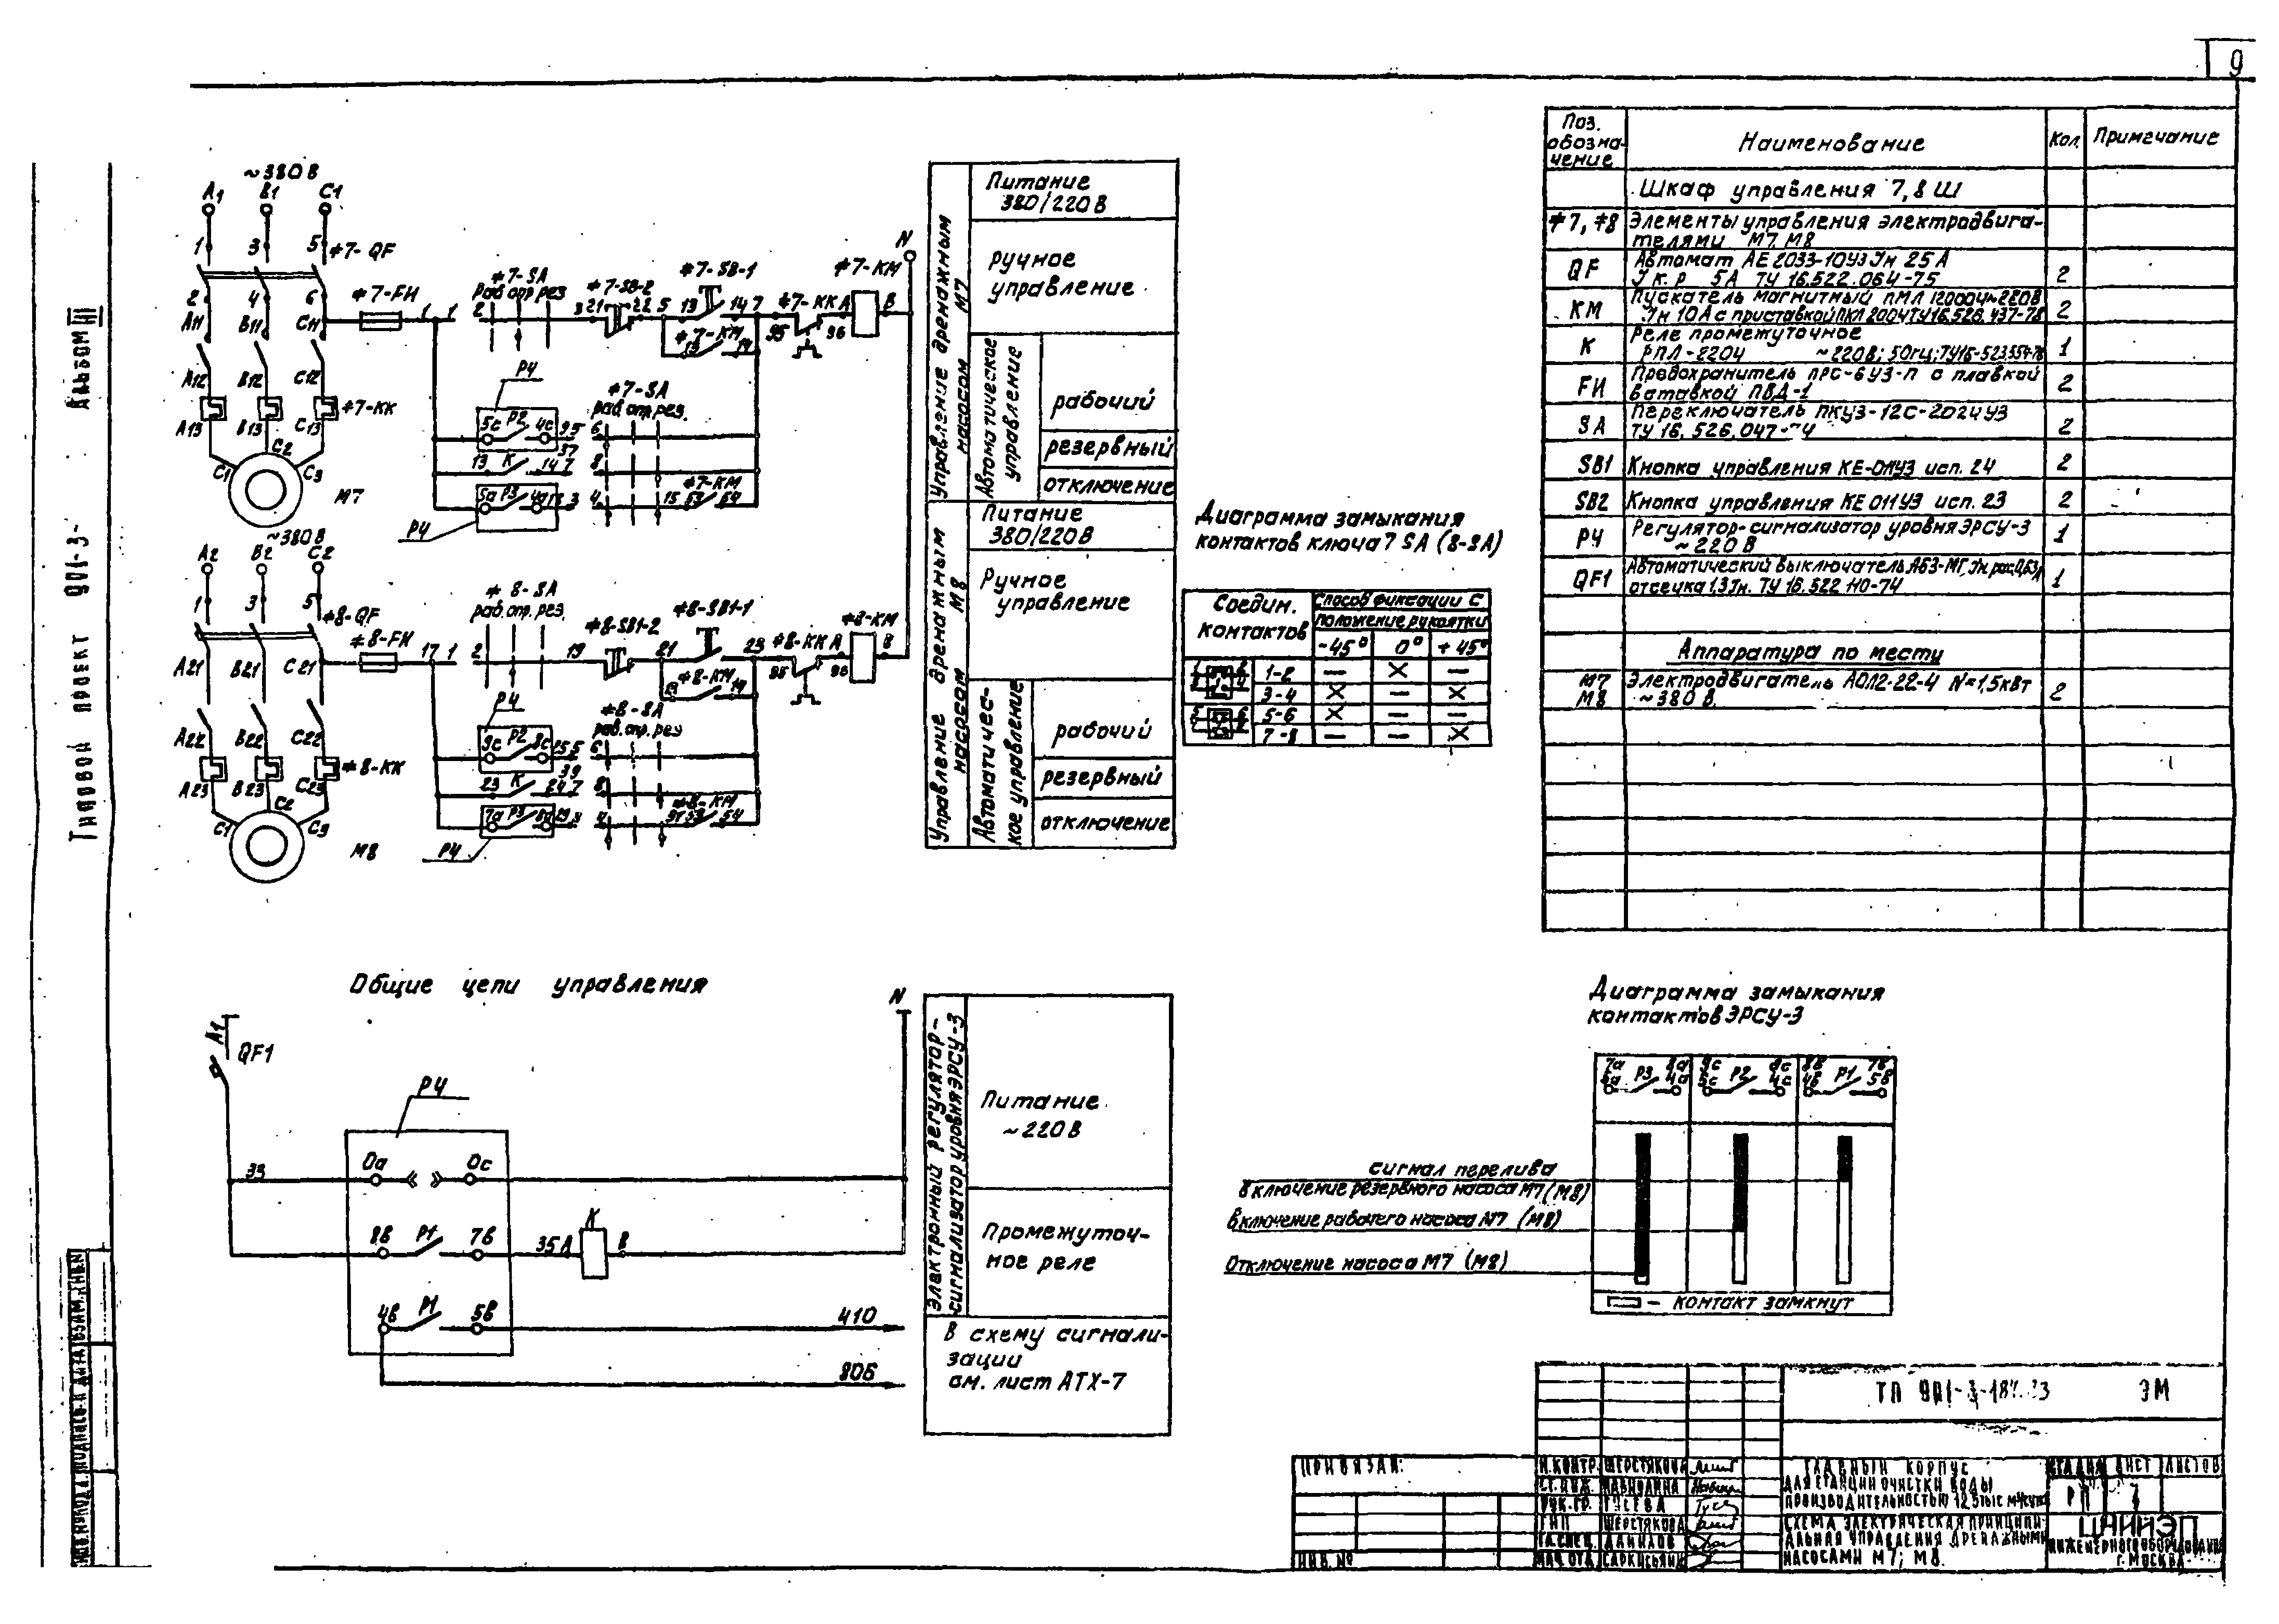 9
Альбом III
Типовой проект 901-3-
~380 В
А1 В1 С1
1 3 5 *7-QF
2 4 6 *7-FИ
А11 В11 С11
А12 В12 С12
*7-КК
А13 В13 С13
С1 С2 С3
М7
*7-SA
раб.отр.рез
*7-SB-2
*7-SB-1
*7-КК
*7-КМ
N
1 1 2 3 21 22 5 13 14 7 95 96 А В
*7-КМ
13 14
РЧ
*7-SA
раб.отр.рез.
5с Р2 4с 9 5 6
37
13 К 14 7 8
*7-КМ
5а Р3 4а 3 4 15 53 54
РЧ
~380 В
А2 В2 С2
1 3 5
*8-QF
*8-FИ
А21 В21 С21
А22 В22 С22
*8-КК
А23 В23 С23
С1 С2 С3
М8
*8-SA
раб.отр.рез.
*8-SB1-2
*8-SB1-1
*8-КК
*8-КМ
17 1 2 19 21 23 95 96 А В
*8-КМ
РЧ
*8-SA
раб.отр.рез
9с Р2 8с 25 5 6
39
23 К 24 7 8
*8-КМ
7а Р3 8а 29 3 4 31 53 54
РЧ
Управление дренажным насосом М7
Питание
380/220 В
Ручное
управление
Автоматическое
управление
рабочий
резервный
отключение
Управление дренажным насосом М8
Питание
380/220 В
Ручное
управление
Автоматичес-
кое управление
рабочий
резервный
отключение
Диаграмма замыкания
контактов ключа 7 SA (8-SA)
Соедин.
контактов
Способ фиксации С
Положение рукоятки
-45° 0° +45°
1-2 — X —
3-4 X — X
5-6 X — —
7-8 — — X
Поз.
обозна-
чение
Наименование
Кол.
Примечание
Шкаф управления 7,8 Ш
*7, *8 Элементы управления электродвига-
телями М7, М8
QF Автомат АЕ 2033-10У3 Iн 25 А
I к.р 5А ТУ 16.522.064-75 2
КМ Пускатель магнитный ПМЛ 120004 ~220В
Iн 10А с приставкой ПКЛ 2004 ТУ16.526.437-78 2
К Реле промежуточное
РПЛ-2204 ~220В; 50гц; ТУ16-523.554-78 1
FИ Предохранитель ПРС-6У3-П с плавкой
вставкой ПВД-1 2
SA Переключатель ПКУ3-12С-2024У3
ТУ 16.526.047-74 2
SB1 Кнопка управления КЕ-011У3 исп. 24 2
SB2 Кнопка управления КЕ 011У3 исп. 23 2
РЧ Регулятор-сигнализатор уровня ЭРСУ-3
~220 В 1
QF1 Автоматический выключатель АБ3-МГ, Iн рас.0,63А
отсечка 1,3 Iн. ТУ 16.522 110-74 1
Аппаратура по месту
М7 Электродвигатель АОЛ2-22-4 N=1,5кВт
М8 ~380 В. 2
Общие цепи управления
А1
QF1
N
РЧ
33 0а 0с
8в Р1 7в 35 А К В
4в Р1 5в 410
806
Электронный регулятор-
сигнализатор уровня ЭРСУ-3
Питание
~220 В
Промежуточ-
ное реле
В схему сигнали-
зации
см. лист АТХ-7
Диаграмма замыкания
контактов ЭРСУ-3
7а 8а 9с 8с 8в 7в
5а Р3 4а 5с Р2 4с 4в Р1 5в
сигнал перелива
Включение резервного насоса М7 (М8)
Включение рабочего насоса М7 (М8)
Отключение насоса М7 (М8)
— контакт замкнут
ЭМ
Привязан:
Инв. №
Н.контр. Шерстякова
Ст.инж.
Рук.гр. Гусева
ГИП Шерстякова
Гл.спец. Данилов
Нач.отд. Саркисьянц
Главный корпус
для станции очистки воды
производительностью 12,5 тыс м³/сутки
Схема электрическая принципи-
альная управления дренажными
насосами М7; М8.
Стадия Лист Листов
РП 7
ЦНИИЭП
инженерного оборудования
г. Москва